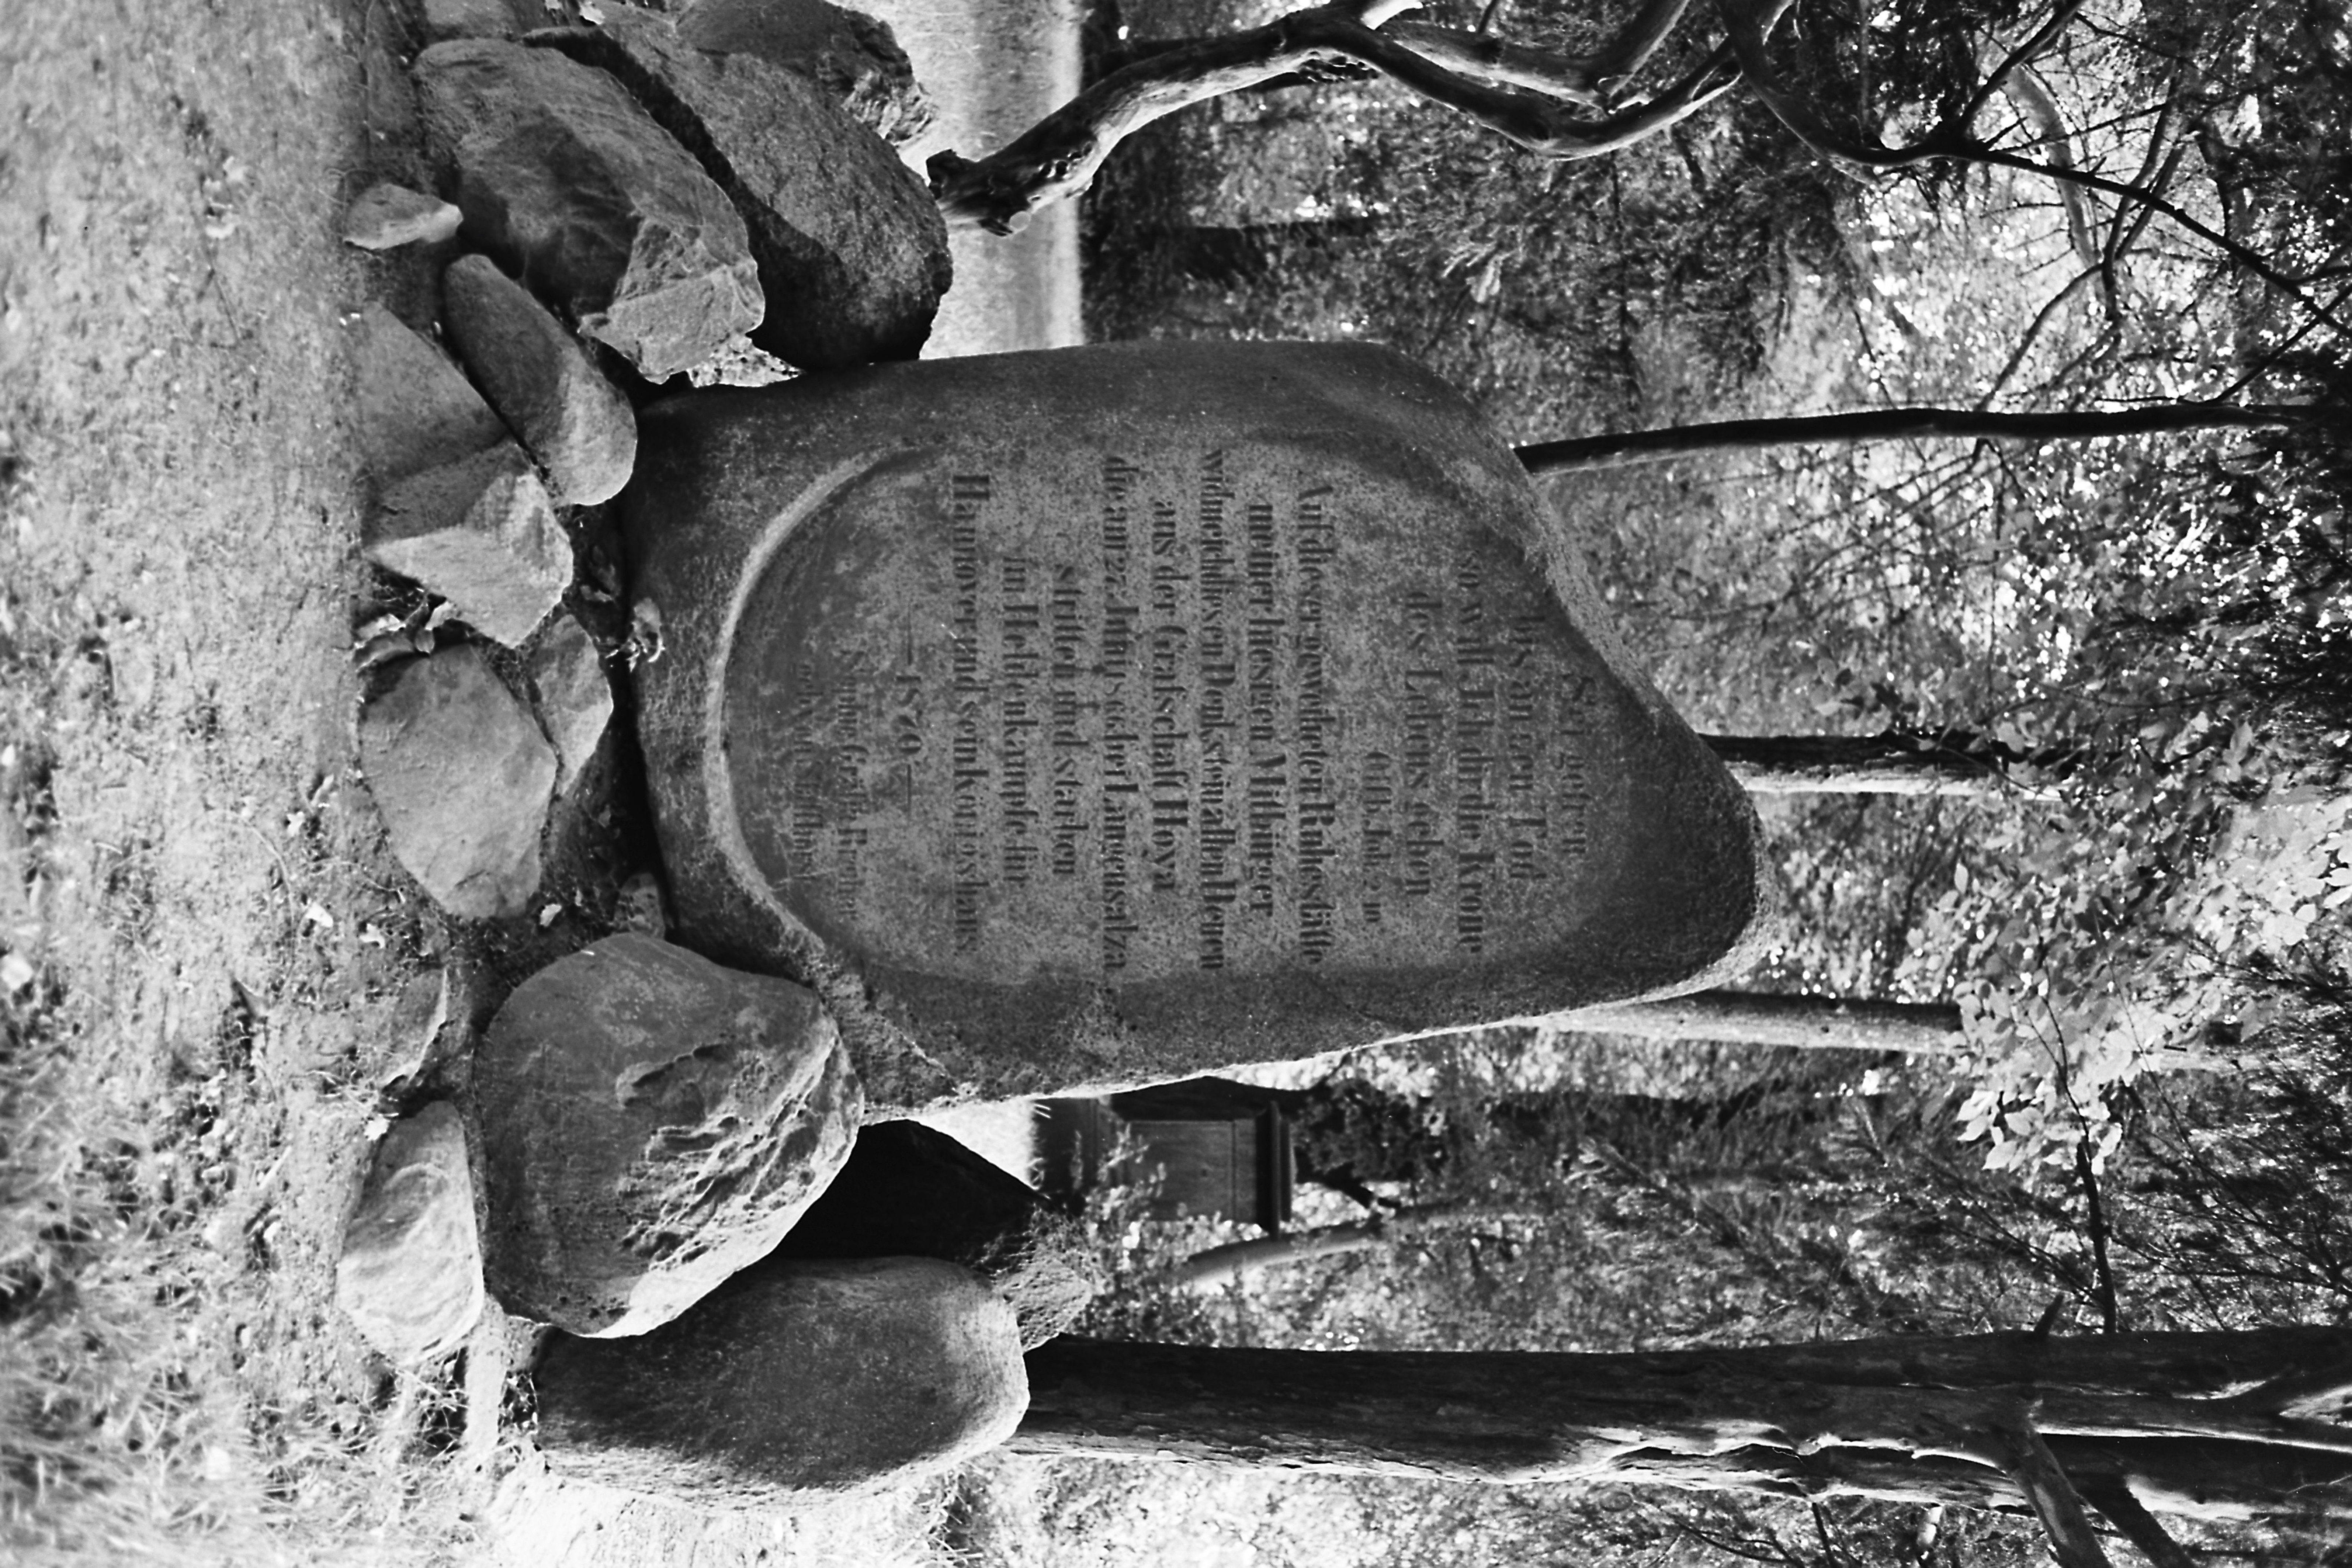 Sei getreu
bis an den Tod
so will Ich dir die Krone
des Lebens geben
Offb. Joh. 2, 10
Auf dieser geweiheten Ruhestätte
meiner hiesigen Mitbürger
widmete ich diesen Denkstein allen Denen
aus der Grafschaft Hoya
die am 27. Juny 1866 bei Langensalza
stritten und starben
im Heldenkampfe für
Hannoverland sein Königshaus
— 1870 —
Sophie Gräfin